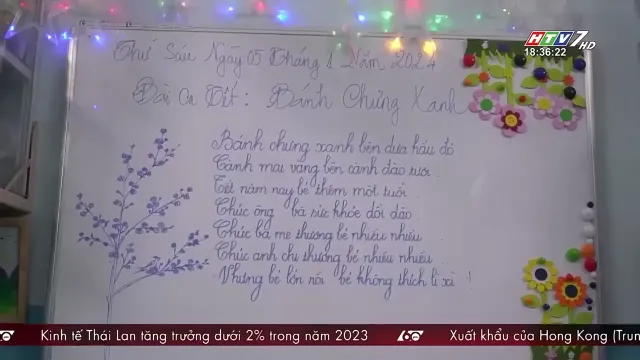 HTV7 HD
18:36:22
Thứ Sáu Ngày 05 Tháng 1 Năm 2024
Bài Ca Tết: Bánh Chưng Xanh
Bánh chưng xanh bên dưa hấu đỏ
Cành mai vàng bên cành đào tươi
Tết năm nay bé thêm một tuổi
Chúc ông bà sức khỏe dồi dào
Chúc bà mẹ thương bé nhiều nhiều
Chúc anh chị thương bé nhiều nhiều
Nhưng bé lớn rồi bé không thích lì xì !
60 Kinh tế Thái Lan tăng trưởng dưới 2% trong năm 2023 60 Xuất khẩu của Hong Kong (Trun